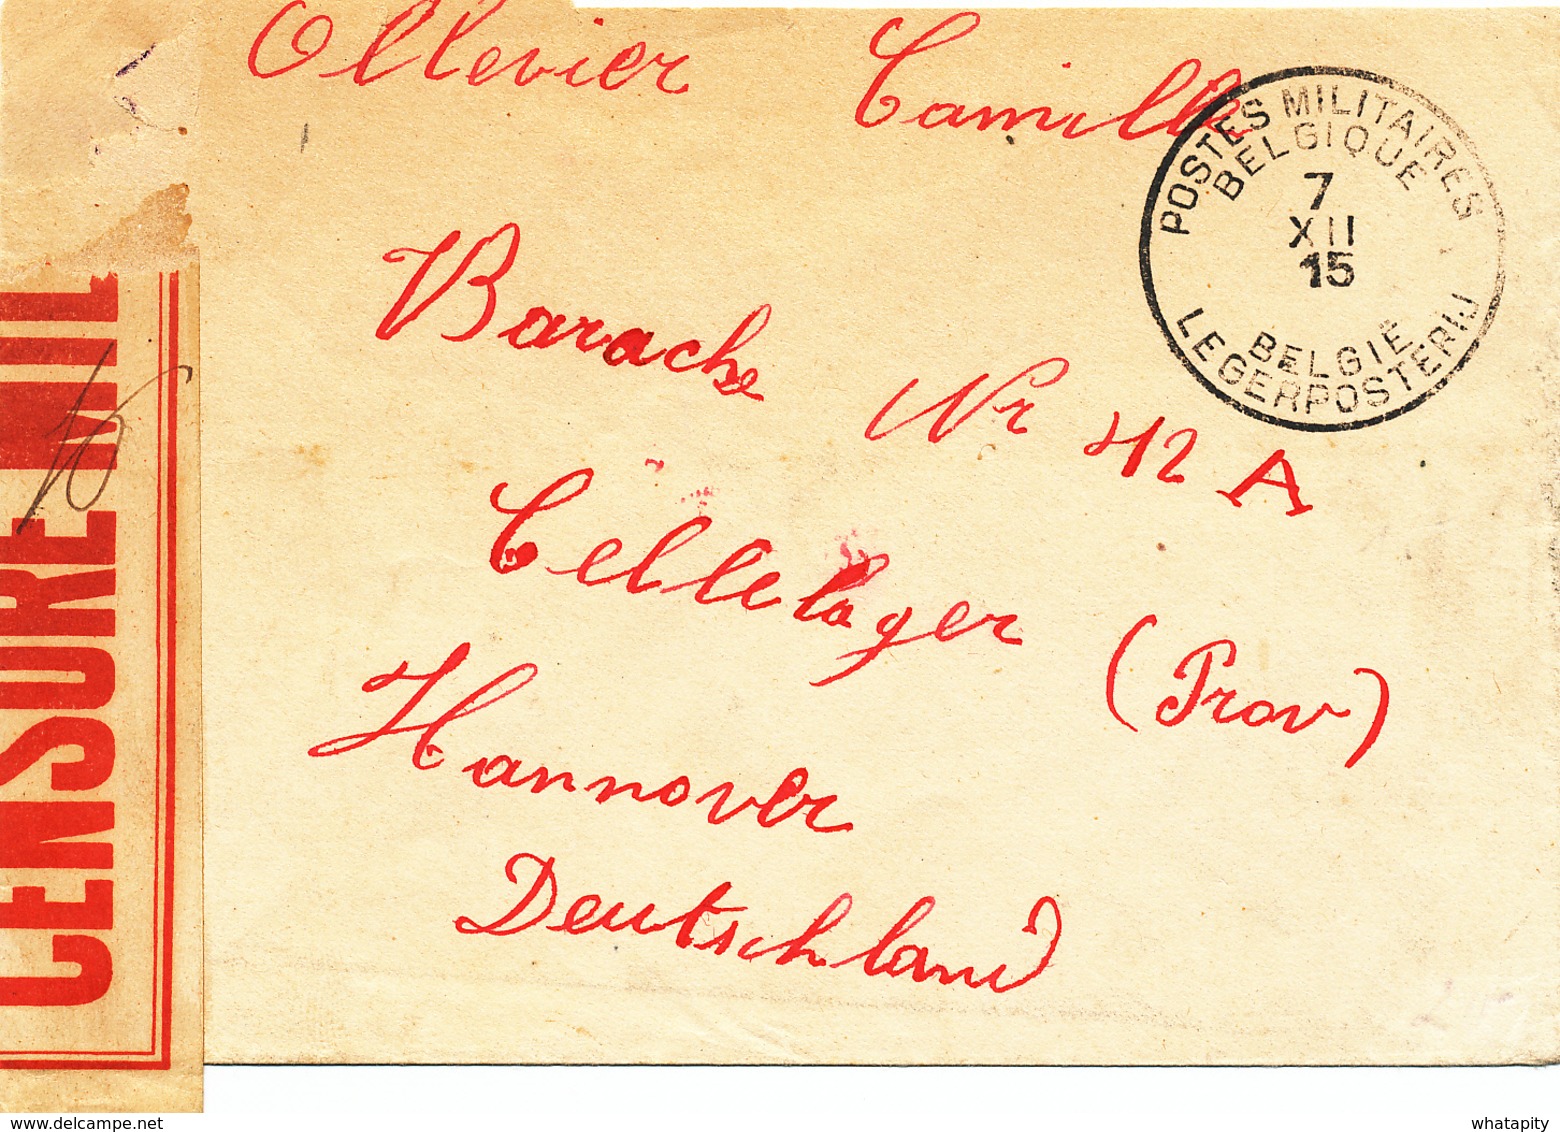 Ollevier Camille
POSTES MILITAIRES
BELGIQUE
7
XII
15
BELGIE
LEGERPOSTERIJ
Barache Nr 412 A
Cellelager (Prov)
Hannover
Deutschland
CENSURE MIL
www.delcampe.net
whatapity